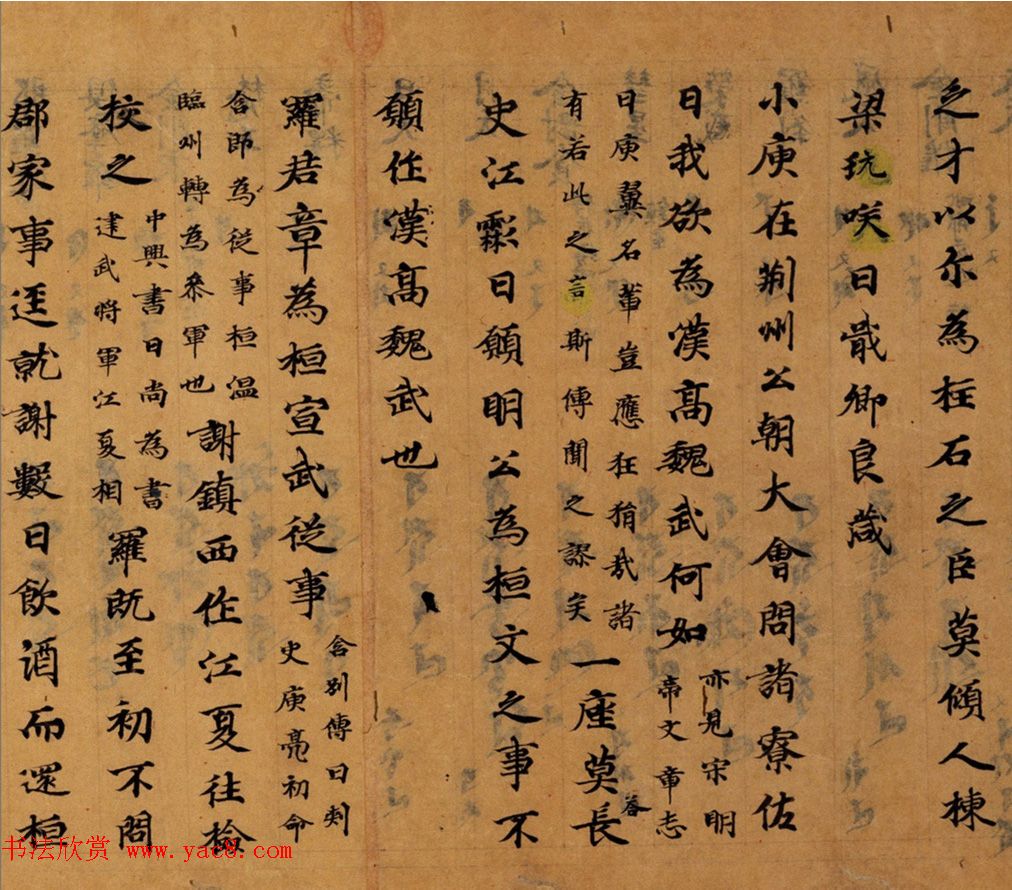 之才以尔為柱石之臣莫傾人棟
梁玩咲曰戢卿良葴
小庾在荊州公朝大會問諸寮佐
曰我欲為漢高魏武何如
亦見宋明
帝文章志
曰庾翼名輩豈應狂狷㢤諸
有若此之言斯傳聞之謬矣
一座莫荅長
史江虨曰願明公為桓文之事不
願作漢高魏武也
羅君章為桓宣武從事
含別傳曰刾
史庾亮初命
含即為從事桓溫
臨州轉為叅軍也
謝鎮西作江夏往檢
校之
中興書曰尚為書
建武將軍江夏相
羅既至初不問
郡家事逕就謝數日飲酒而還桓
书法欣赏 www.yac8.com